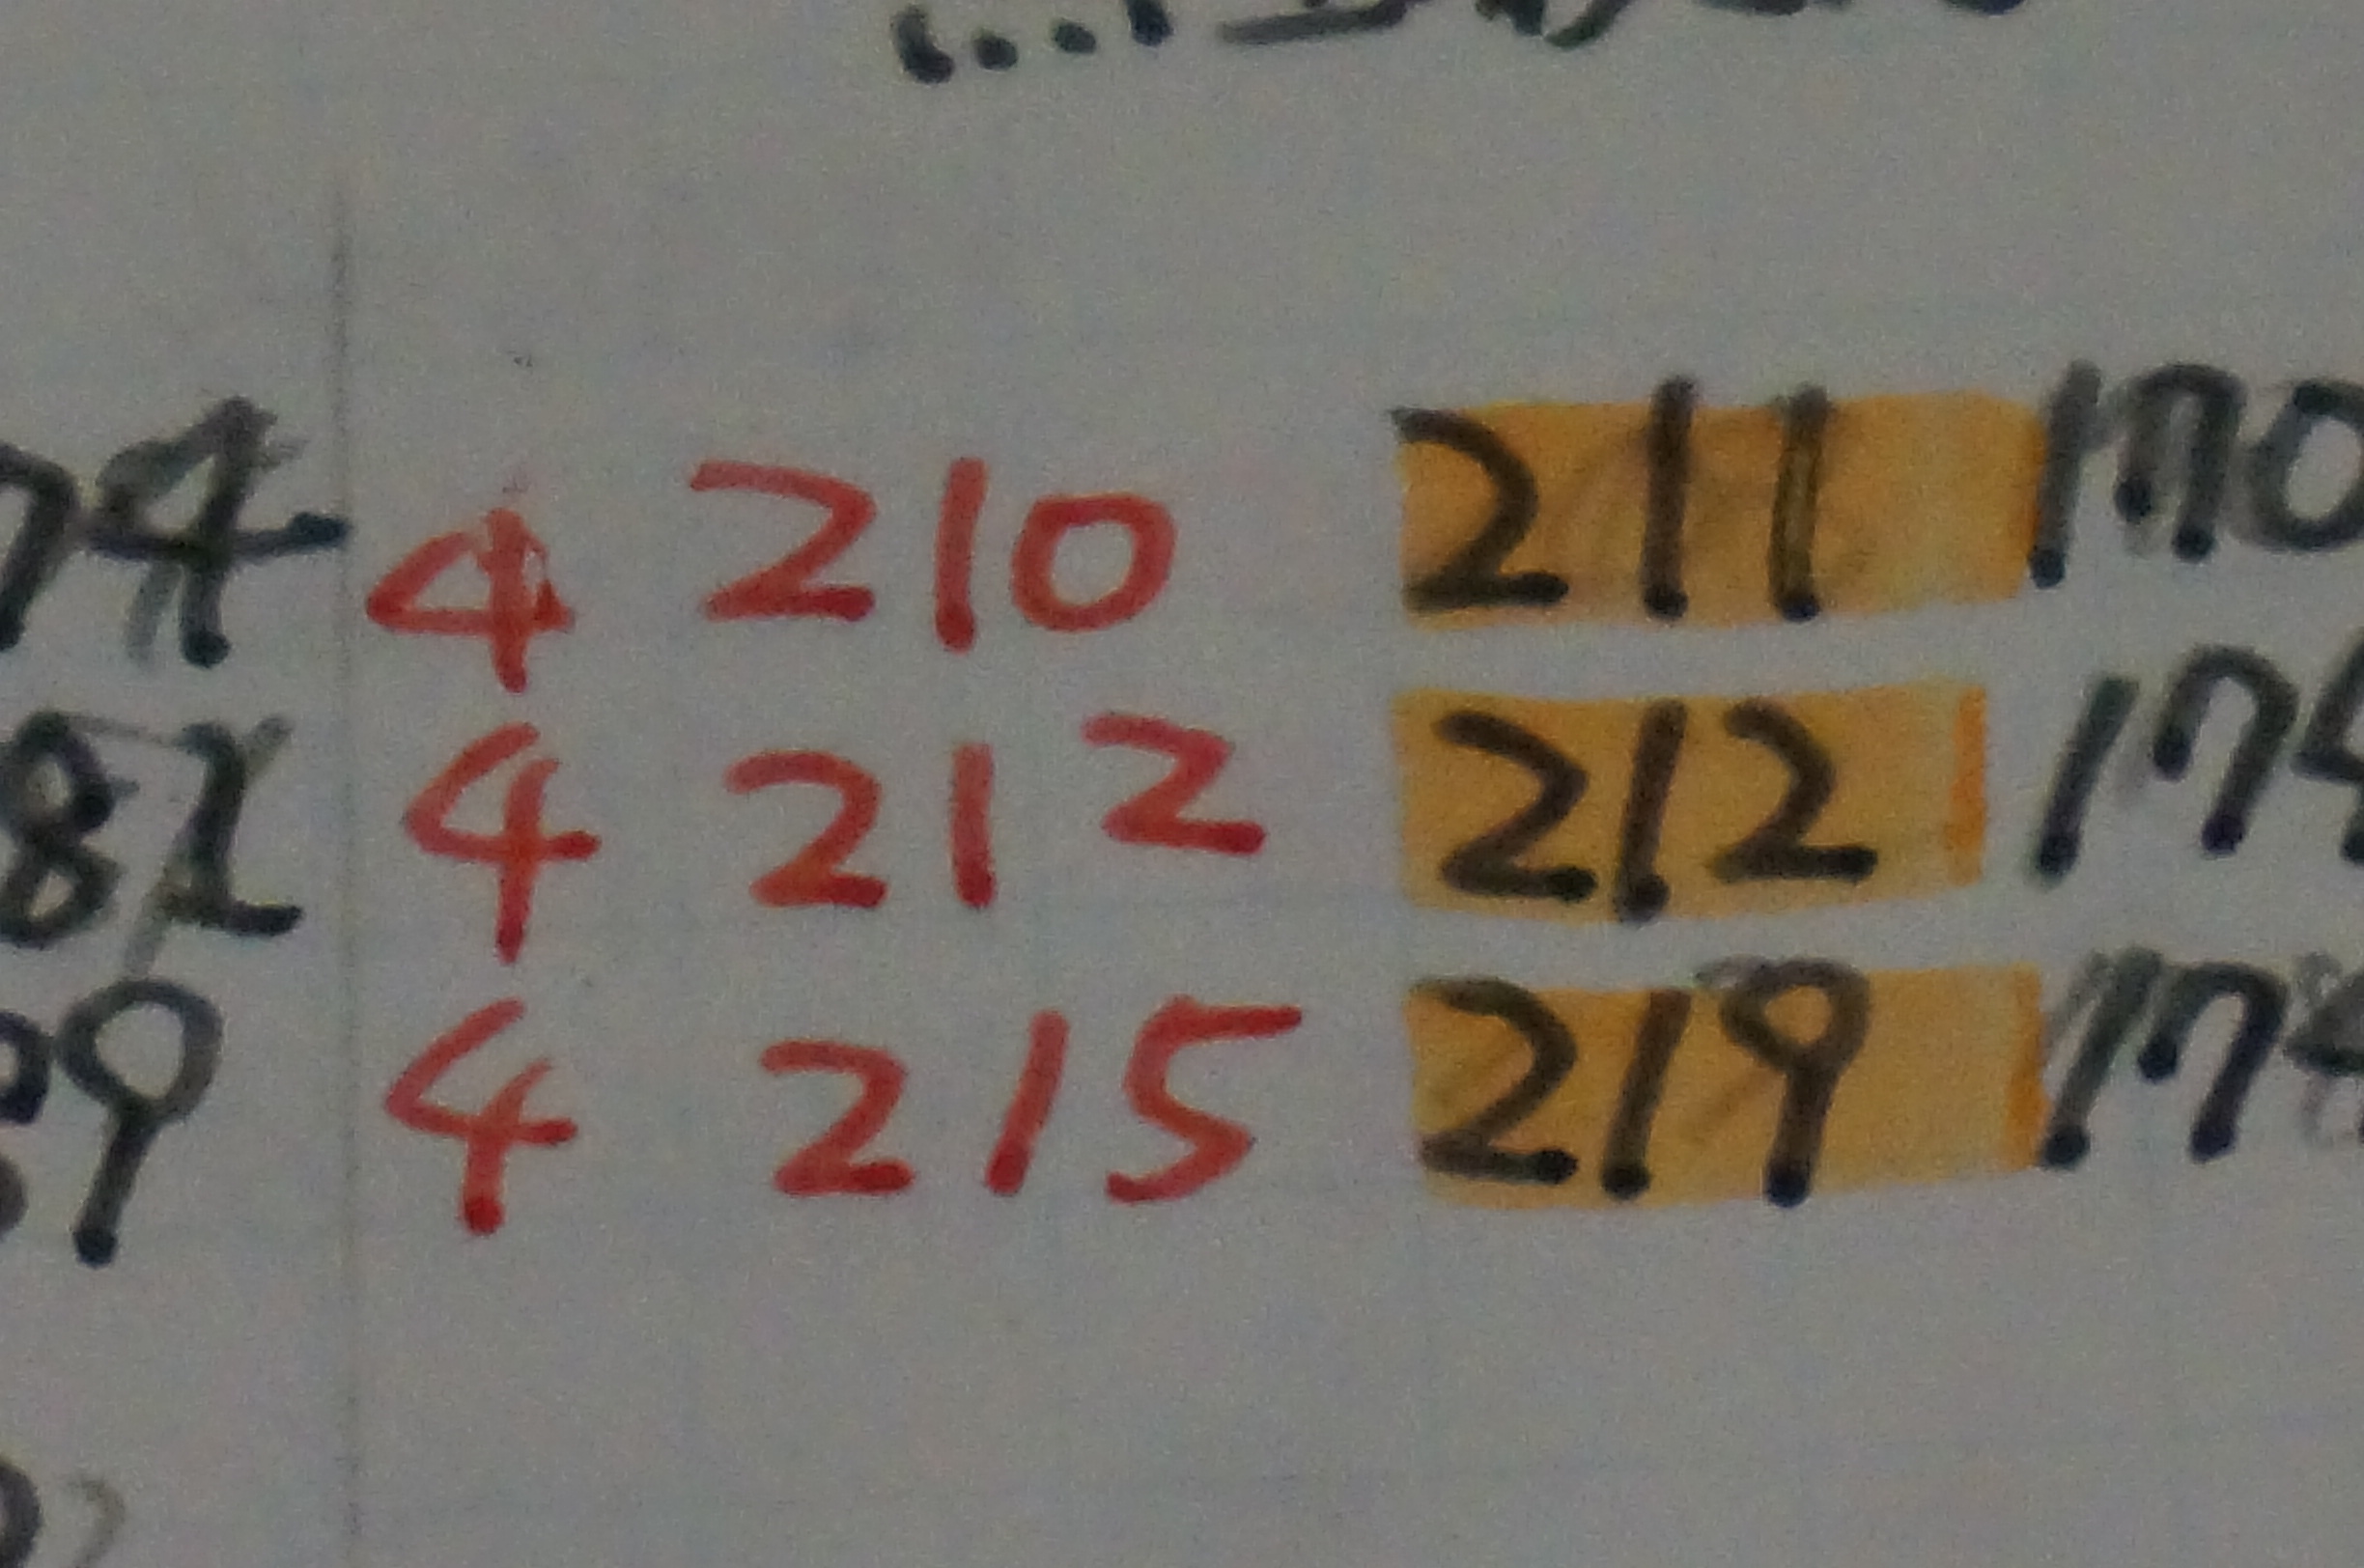 74 4 210 211 170
82 4 212 212 17
9 4 215 219 17